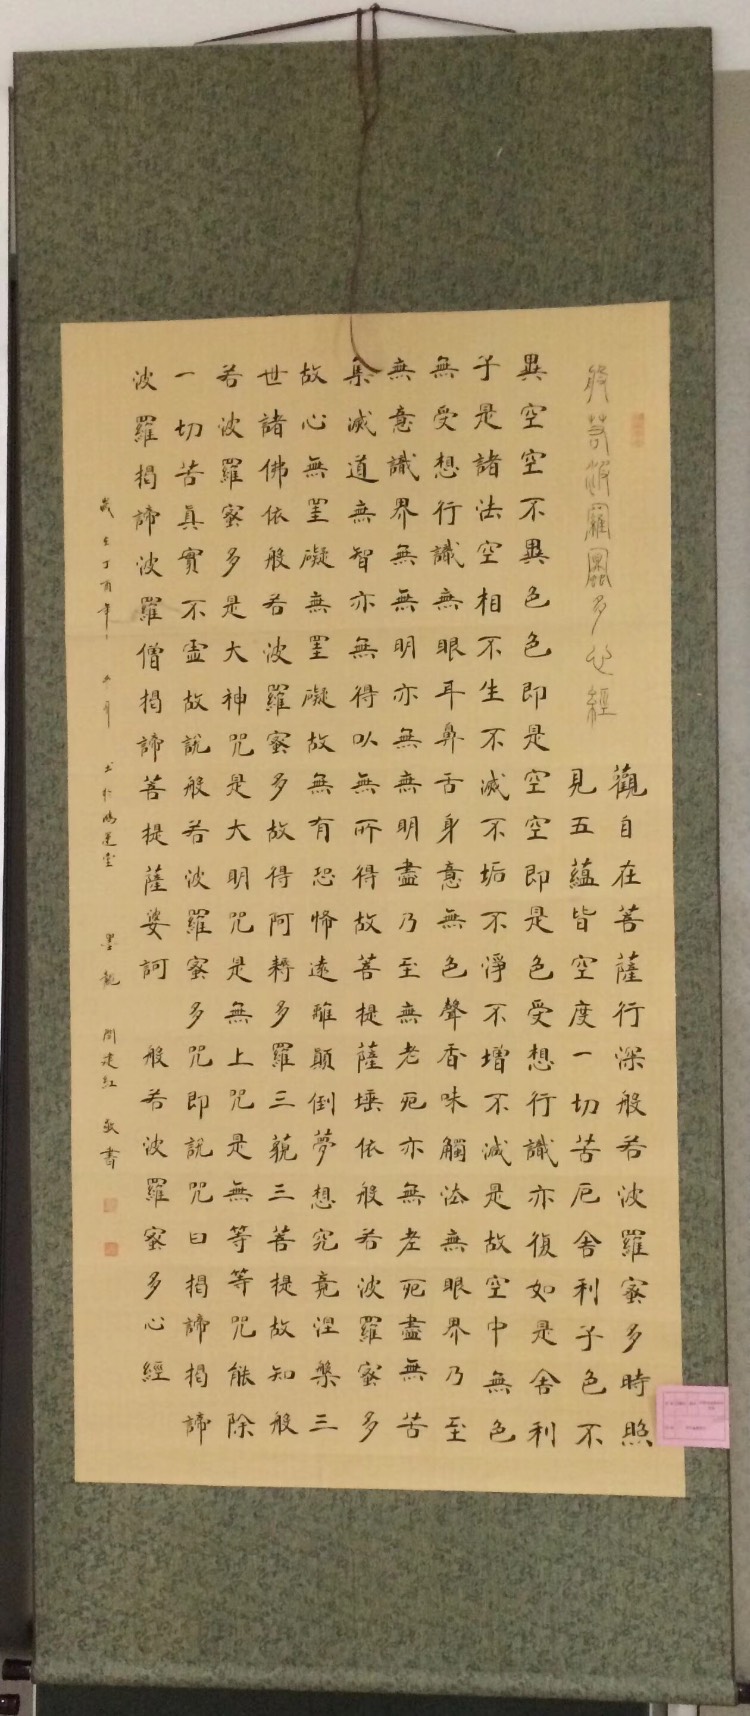 般若波羅蜜多心經
觀自在菩薩行深般若波羅蜜多時照
見五蘊皆空度一切苦厄舍利子色不
異空空不異色色即是空空即是色受想行識亦復如是舍利
子是諸法空相不生不滅不垢不淨不增不減是故空中無色
無受想行識無眼耳鼻舌身意無色聲香味觸法無眼界乃至
無意識界無無明亦無無明盡乃至無老死亦無老死盡無苦
集滅道無智亦無得以無所得故菩提薩埵依般若波羅蜜多
故心無罣礙無罣礙故無有恐怖遠離顛倒夢想究竟涅槃三
世諸佛依般若波羅蜜多故得阿耨多羅三藐三菩提故知般
若波羅蜜多是大神咒是大明咒是無上咒是無等等咒能除
一切苦真實不虛故說般若波羅蜜多咒即說咒曰揭諦揭諦
波羅揭諦波羅僧揭諦菩提薩婆訶 般若波羅蜜多心經
歲在丁酉年 書於 堂 墨龍 建紅 敬書